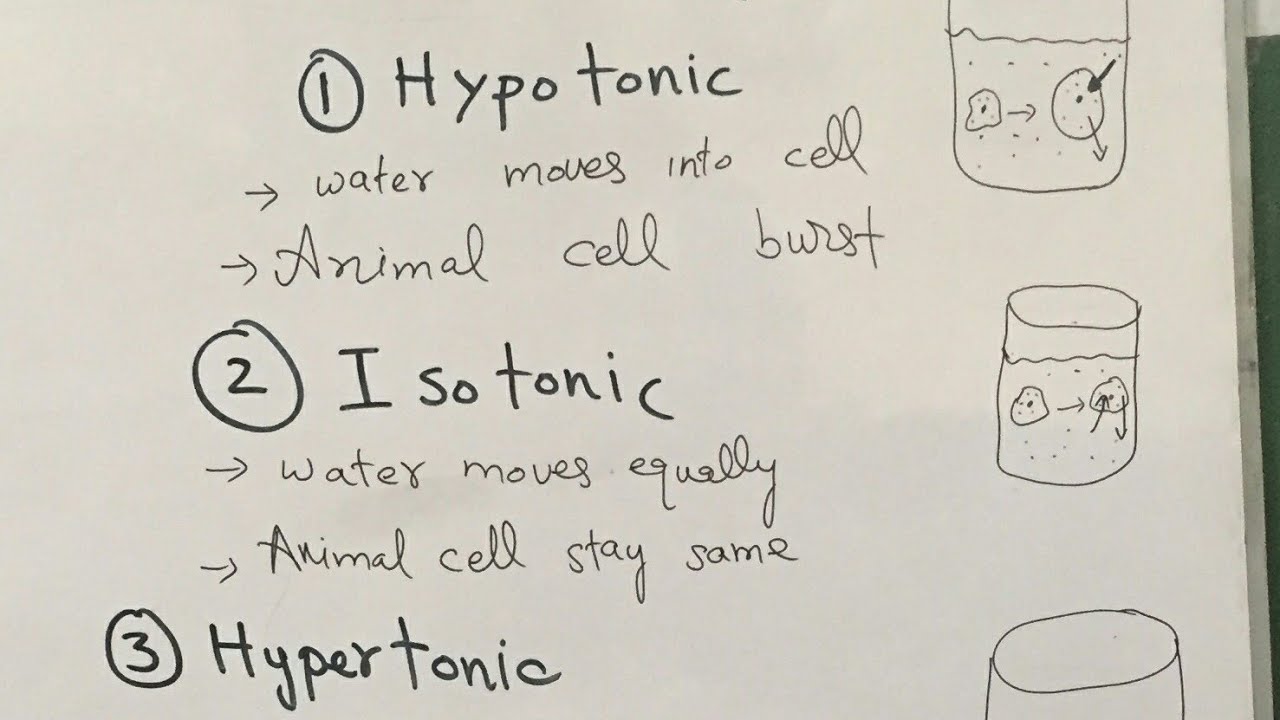 ① Hypotonic
→ water moves into cell
→ Animal cell burst
② Isotonic
→ water moves equally
→ Animal cell stay same
③ Hypertonic